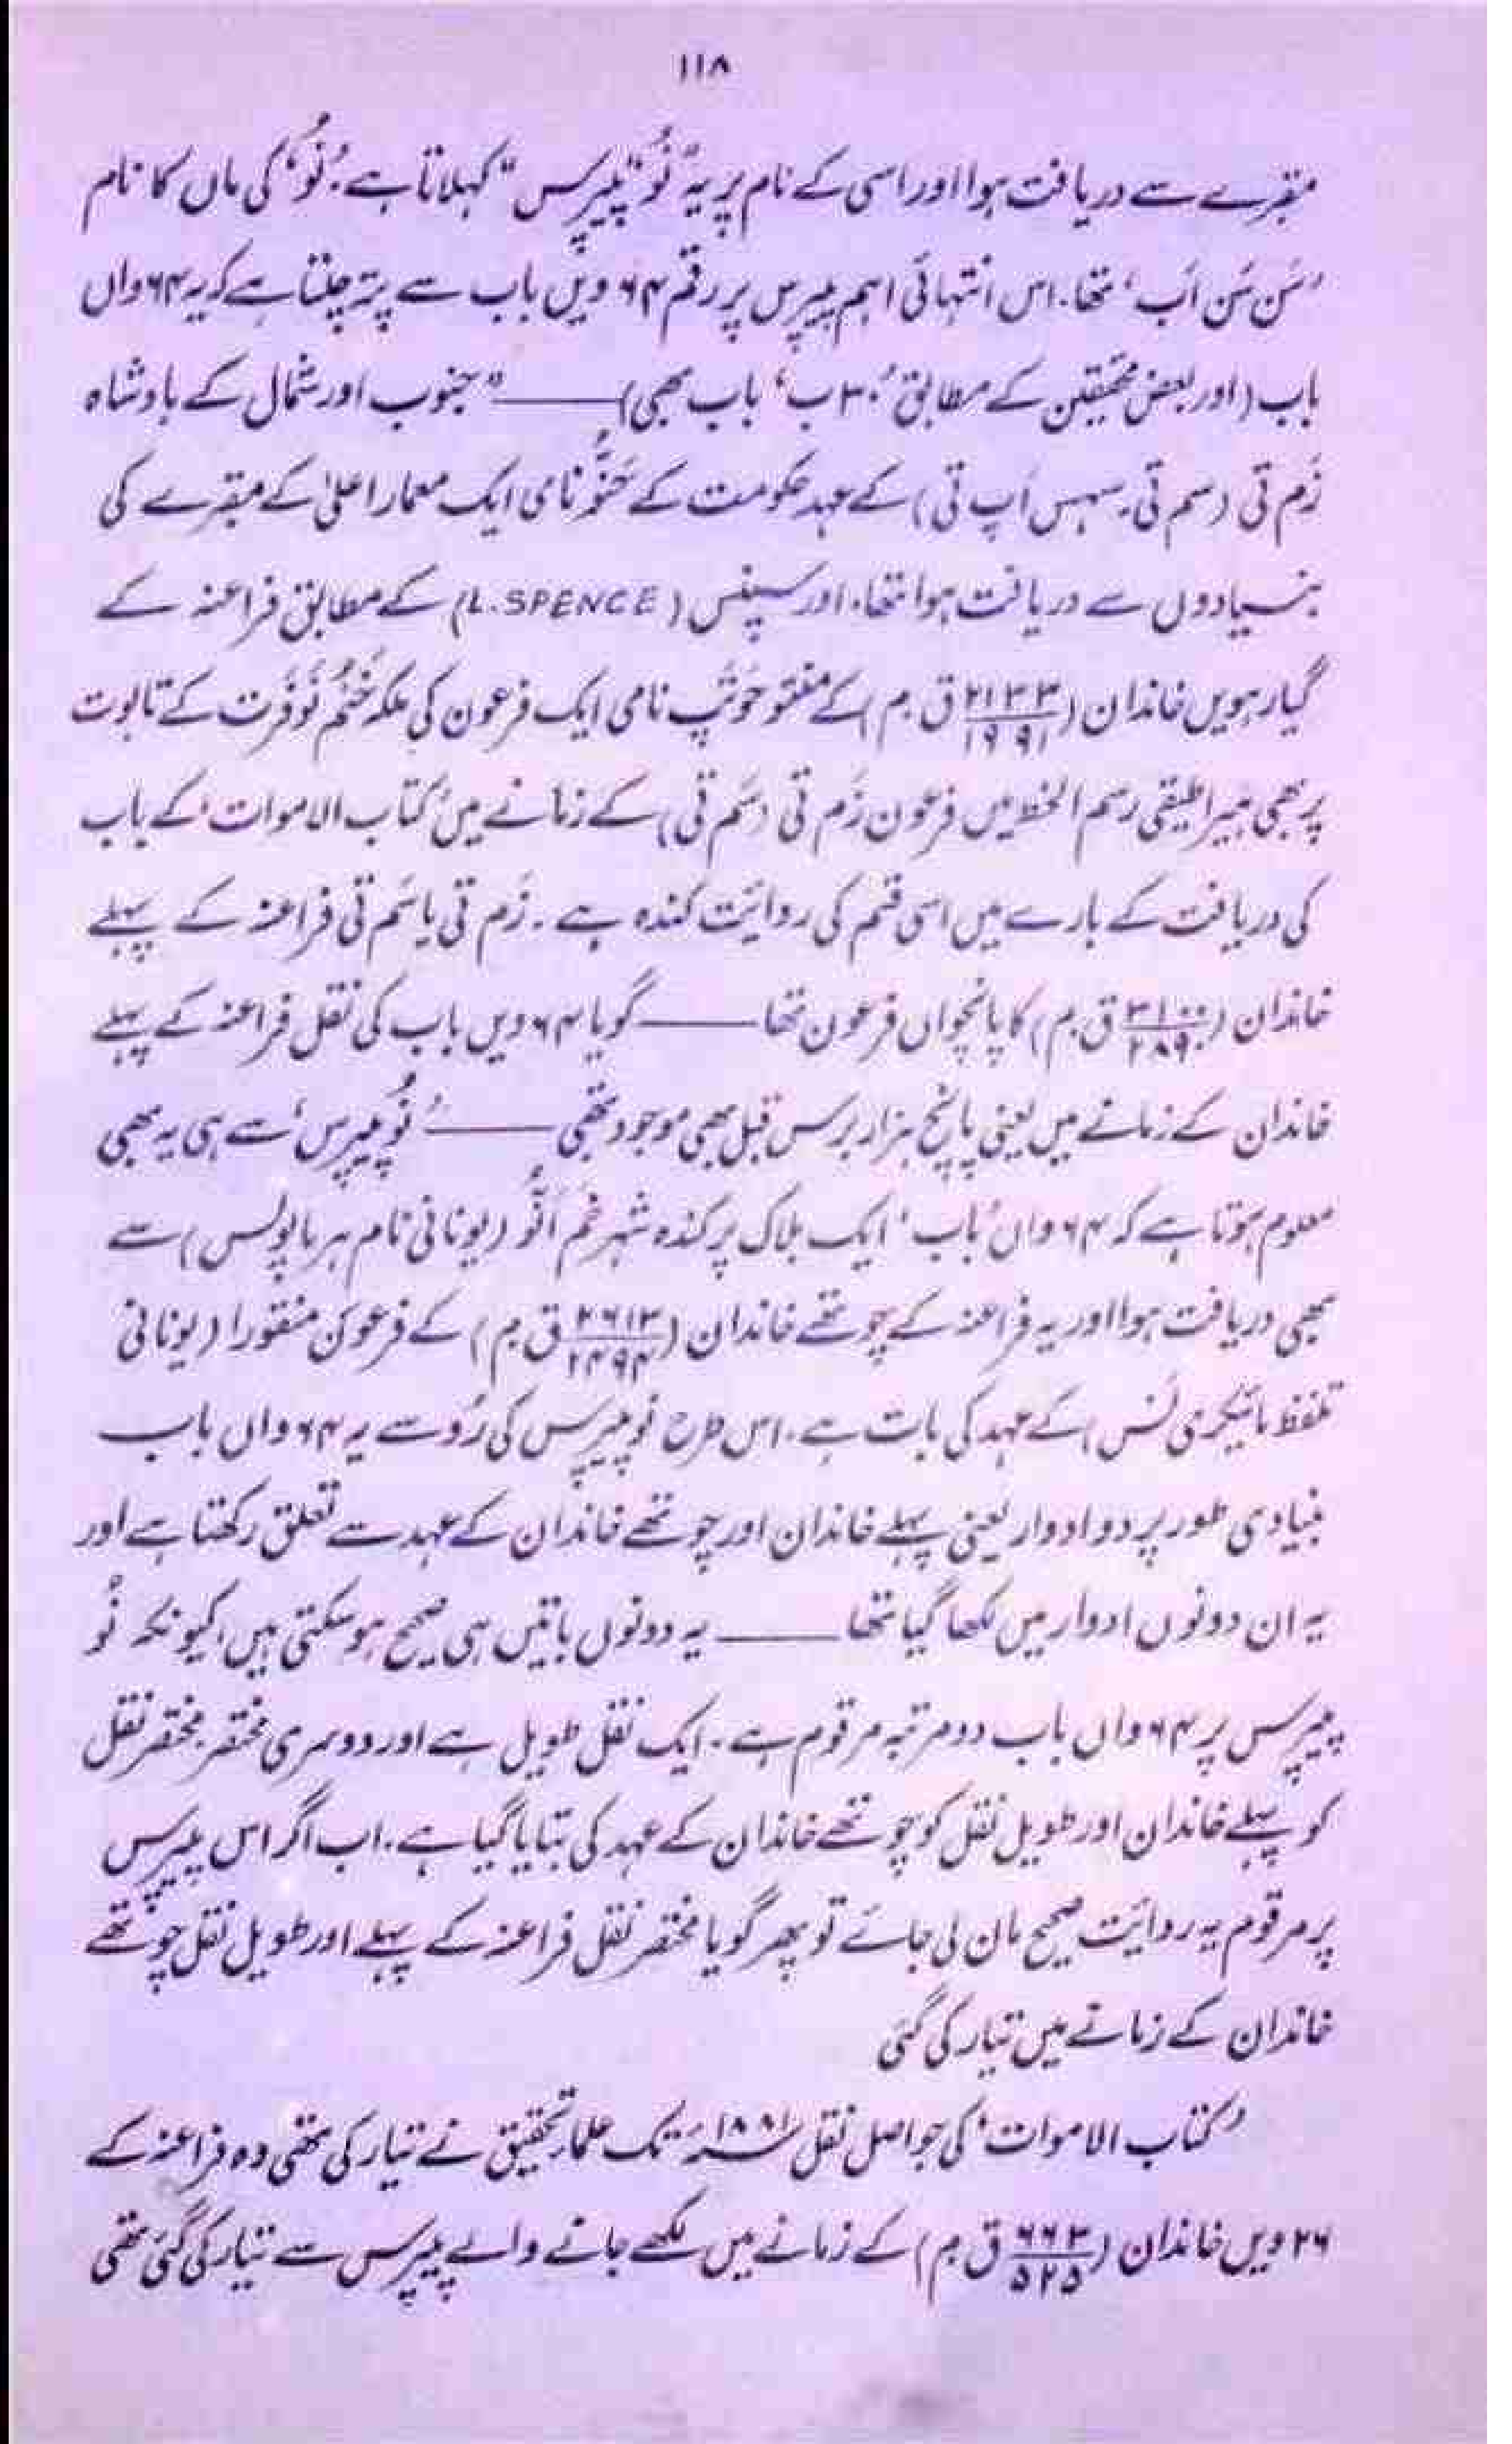 ۱۱۸
مقبرے سے دریافت ہوا اور اسی کے نام پر یہ "نُو پیپرس" کہلاتا ہے۔ 'نُو' کی ماں کا نام
'سَن سَن اَب' تھا۔ اس انتہائی اہم پیپرس پر رقم ۶۴ ویں باب سے پتہ چلتا ہے کہ یہ ۶۴ واں
باب (اور بعض محققین کے مطابق '۳۰ ب' باب بھی) ——— "جنوب اور شمال کے بادشاہ
زَم تی (سم تی۔ سہس اَپ تی) کے عہد حکومت کے حَنُّو نامی ایک معمار اعلیٰ کے مقبرے کی
بنیادوں سے دریافت ہوا تھا۔ اور سپنس (L. SPENCE) کے مطابق فراعنہ کے
گیارہویں خاندان (۲۱۳۳/۱۹۹۱ ق۔م) کے منتو حَوتَپ نامی ایک فرعون کی ملکہ خَنُم نَوفَرت کے تابوت
پر بھی ہیراطیقی رسم الخط میں فرعون زَم تی (سَم تی) کے زمانے میں 'کتاب الاموات' کے باب
کی دریافت کے بارے میں اسی قسم کی روائت کندہ ہے۔ زَم تی یا سَم تی فراعنہ کے پہلے
خاندان (۳۱۰۰/۲۸۹۰ ق۔م) کا پانچواں فرعون تھا ——— گویا ۶۴ ویں باب کی نقل فراعنہ کے پہلے
خاندان کے زمانے میں یعنی پانچ ہزار برس قبل بھی موجود تھی ——— 'نُو پیپرس' سے ہی یہ بھی
معلوم ہوتا ہے کہ ۶۴ واں 'باب' ایک بلاک پر کندہ شہر خَم اَنُّو (یونانی نام ہرماپولس) سے
بھی دریافت ہوا اور یہ فراعنہ کے چوتھے خاندان (۲۶۱۳/۲۴۹۴ ق۔م) کے فرعون منقورا (یونانی
تلفظ مائیکری نَس) کے عہد کی بات ہے۔ اس طرح نُو پیپرس کی رُو سے یہ ۶۴ واں باب
بنیادی طور پر دو ادوار یعنی پہلے خاندان اور چوتھے خاندان کے عہد سے تعلق رکھتا ہے اور
یہ ان دونوں ادوار میں لکھا گیا تھا ——— یہ دونوں باتیں ہی صحیح ہوسکتی ہیں، کیونکہ نُو
پیپرس پر ۶۴ واں باب دو مرتبہ مرقوم ہے۔ ایک نقل طویل ہے اور دوسری مختصر۔ مختصر نقل
کو پہلے خاندان اور طویل نقل کو چوتھے خاندان کے عہد کی بتایا گیا ہے۔ اب اگر اس پیپرس
پر مرقوم یہ روائت صحیح مان لی جائے تو پھر گویا مختصر نقل فراعنہ کے پہلے اور طویل نقل چوتھے
خاندان کے زمانے میں تیار کی گئی
'کتاب الاموات' کی جو اصل نقل ۱۸۸۱ء تک علمائے تحقیق نے تیار کی تھی وہ فراعنہ کے
۲۶ ویں خاندان (۶۶۳/۵۲۵ ق۔م) کے زمانے میں لکھے جانے والے پیپرس سے تیار کی گئی تھی